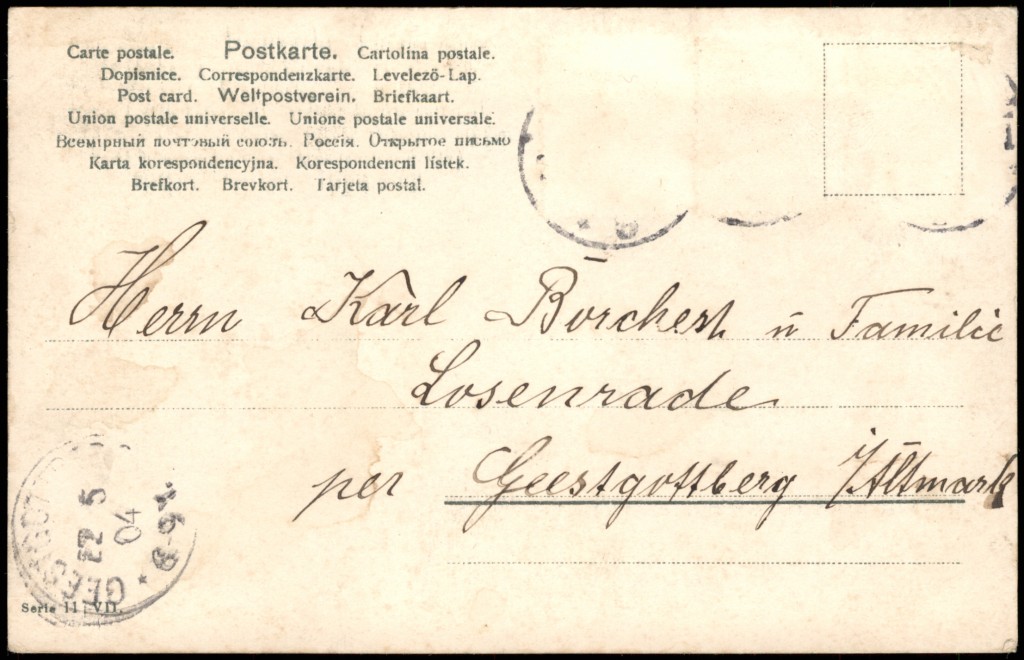 Carte postale. Postkarte. Cartolina postale.
Dopisnice. Correspondenzkarte. Levelező-Lap.
Post card. Weltpostverein. Briefkaart.
Union postale universelle. Unione postale universale.
Всемірный почтовый союзъ. Россія. Открытое письмо
Karta korespondencyjna. Korespondencni lístek.
Brefkort. Brevkort. Tarjeta postal.
Herrn Karl Borchert ū Familie
Losenrade
per Geestgottberg i/Altmark
5
04
8-9
Serie II VII.